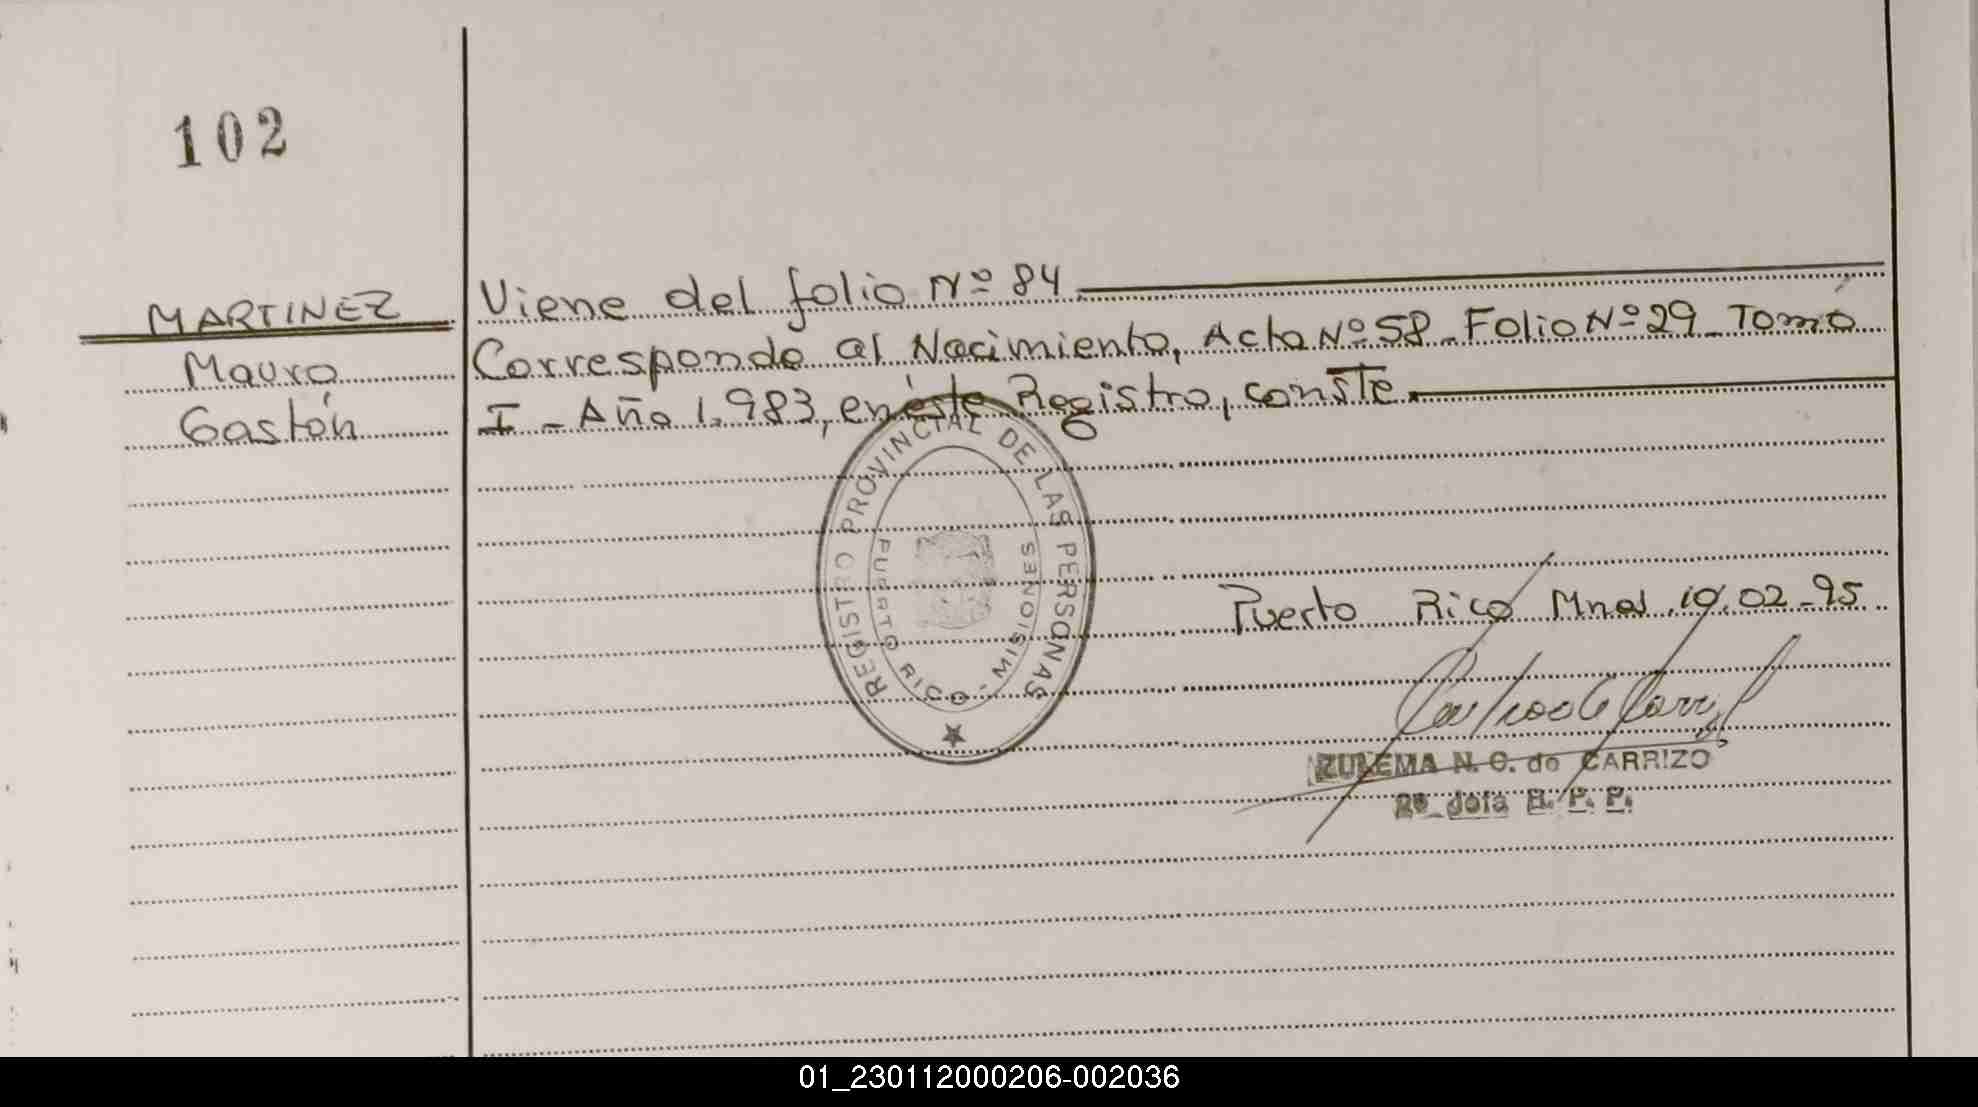 102
MARTINEZ
Mauro
Gastón
Viene del folio Nº 84.
Corresponde al Nacimiento, Acta Nº 58 - Folio Nº 29 - Tomo
I - Año 1.983, en éste Registro, conste.
REGISTRO PROVINCIAL DE LAS PERSONAS
PUERTO RICO - MISIONES
Puerto Rico Mnes. 10.02-95
ZULEMA N. C. de CARRIZO
R. P. P.
01_230112000206-002036